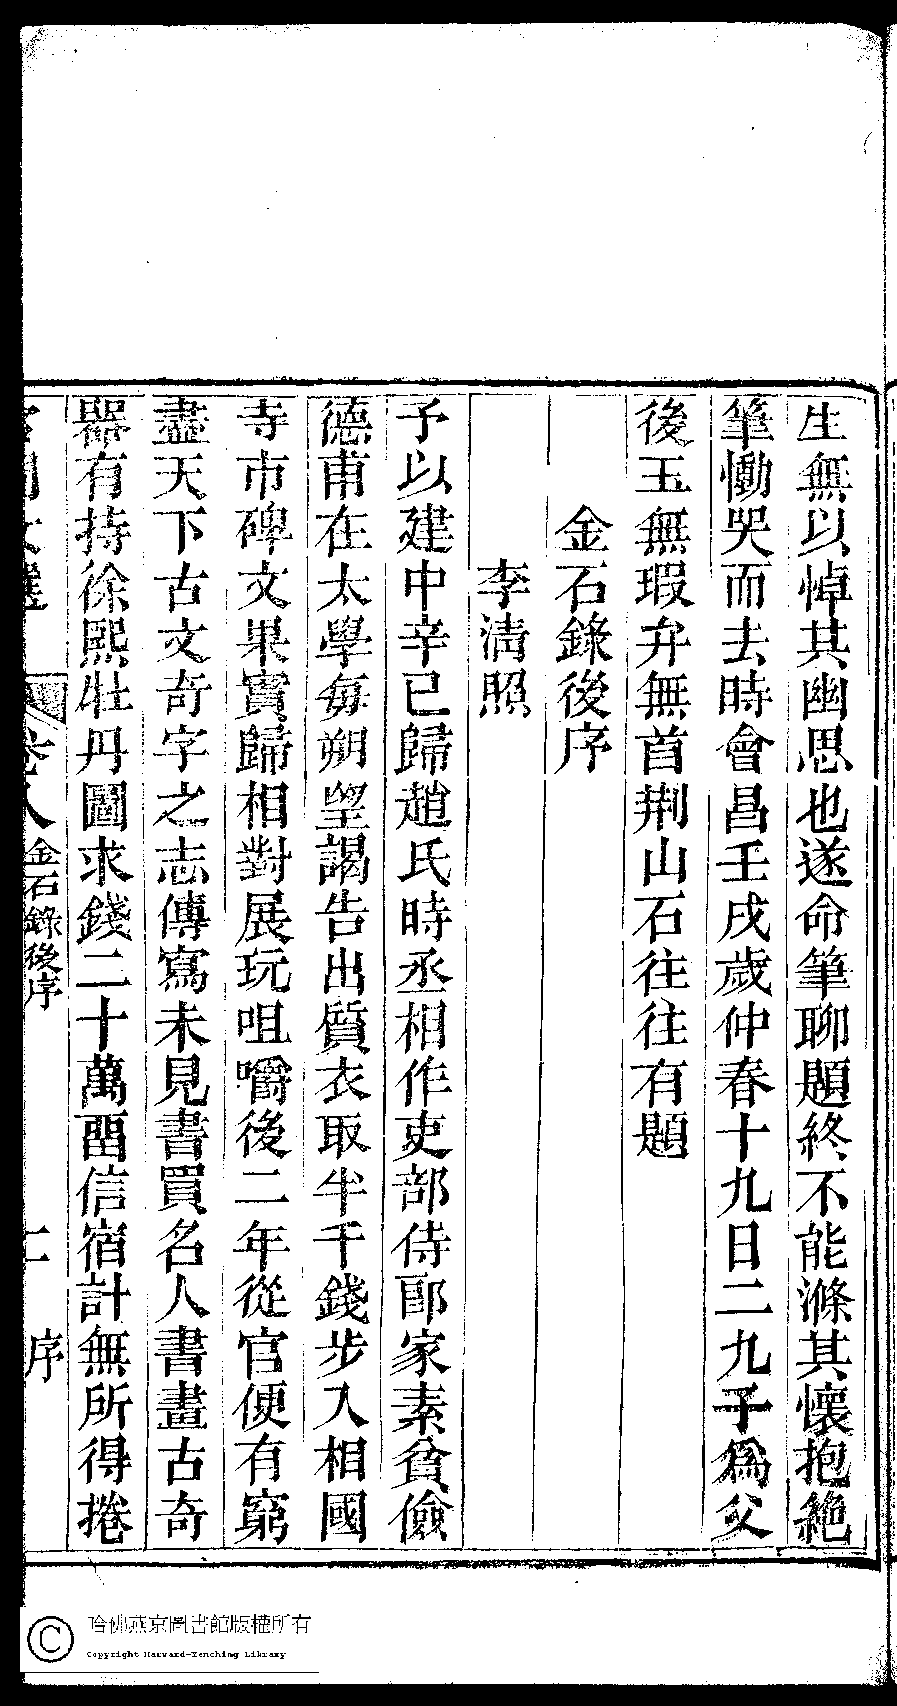 生無以悼其幽思也遂命筆聊題終不能滌其懷抱絶
筆慟哭而去時會昌壬戌歲仲春十九日二九子爲父
後玉無瑕弁無首荆山石往往有題
金石錄後序
李清照
予以建中辛巳歸趙氏時丞相作吏部侍郎家素貧儉
德甫在太學每朔望謁告出質衣取半千錢步入相國
寺市碑文果實歸相對展玩咀嚼後二年從官便有窮
盡天下古文奇字之志傳寫未見書買名人書畫古奇
器有持徐熙牡丹圖求錢二十萬畱信宿計無所得捲
宮閨文選
卷八
金石錄後序
序
哈佛燕京圖書館版權所有
Copyright Harvard-Yenching Library